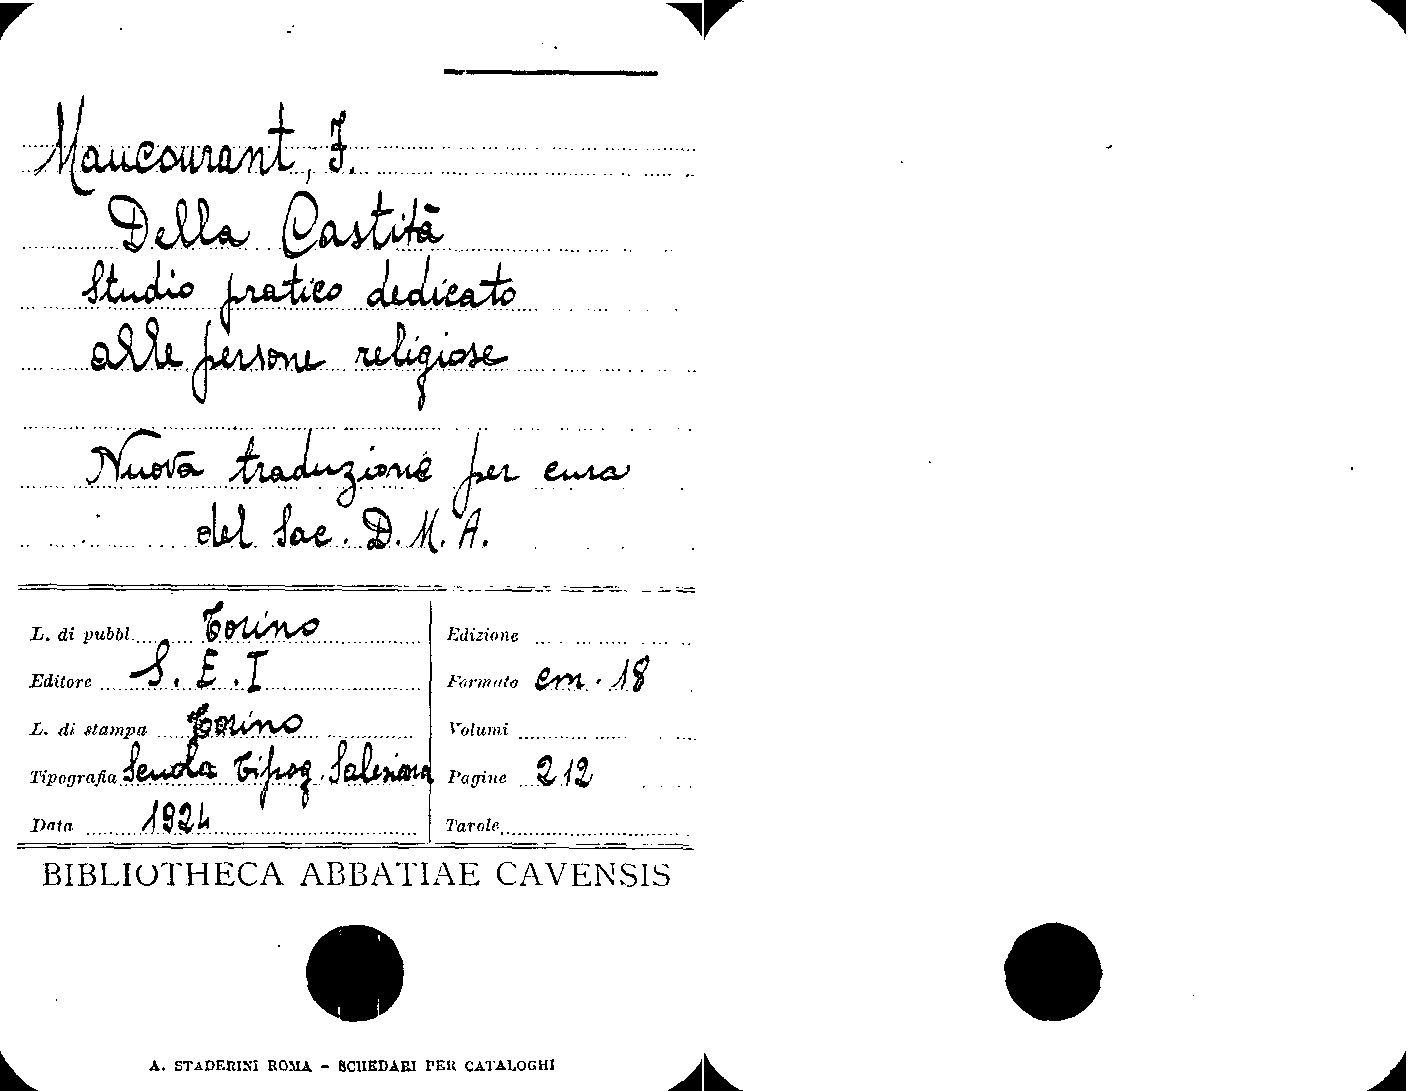 Maucourant, F.
Della Castità
Studio pratico dedicato
alle persone religiose
Nuova traduzione per cura
del Sac. D. M. A.
L. di pubbl. Torino
Edizione
Editore S. E. I
Formato cm. 18
L. di stampa Torino
Volumi
Tipografia Scuola Tipog. Salesiana
Pagine 212
Data 1924
Tavole
BIBLIOTHECA ABBATIAE CAVENSIS
A. STADERINI ROMA - SCHEDARI PER CATALOGHI